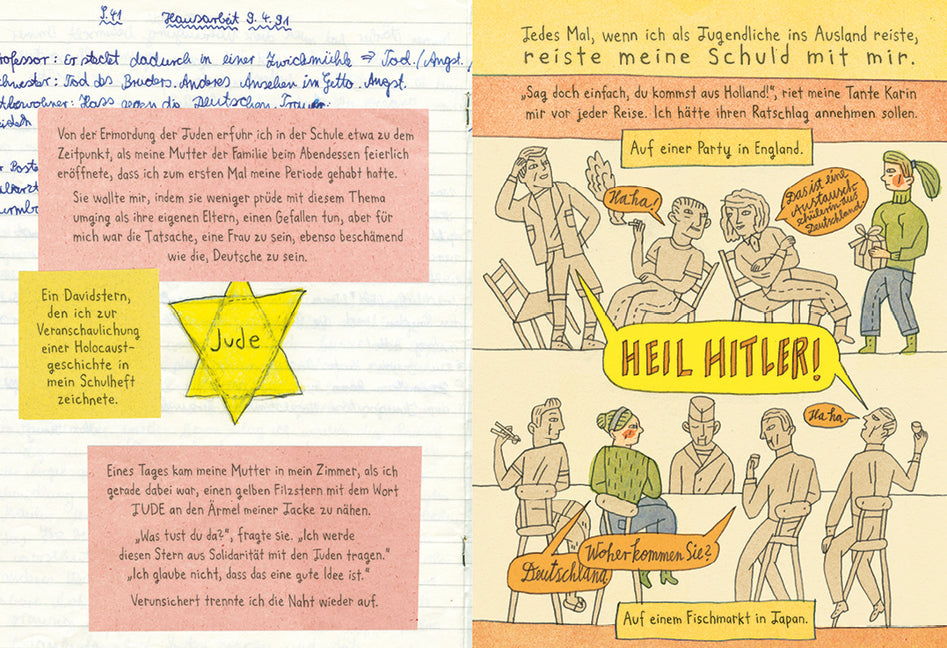 S.41 Hausarbeit 9.4.91
rofessor: Er steckt dadurch in einer Zwickmühle ⇒ Tod./Angst.
chwester: Tod des Bruders. Anderes Ansehen im Getto. Angst.
ttobewohner: Hass gegen die Deutschen. Trauer.
Von der Ermordung der Juden erfuhr ich in der Schule etwa zu dem
Zeitpunkt, als meine Mutter der Familie beim Abendessen feierlich
eröffnete, dass ich zum ersten Mal meine Periode gehabt hatte.
Sie wollte mir, indem sie weniger prüde mit diesem Thema
umging als ihre eigenen Eltern, einen Gefallen tun, aber für
mich war die Tatsache, eine Frau zu sein, ebenso beschämend
wie die, Deutsche zu sein.
Ein Davidstern,
den ich zur
Veranschaulichung
einer Holocaust-
geschichte in
mein Schulheft
zeichnete.
Jude
Eines Tages kam meine Mutter in mein Zimmer, als ich
gerade dabei war, einen gelben Filzstern mit dem Wort
JUDE an den Ärmel meiner Jacke zu nähen.
„Was tust du da?“, fragte sie. „Ich werde
diesen Stern aus Solidarität mit den Juden tragen.“
„Ich glaube nicht, dass das eine gute Idee ist.“
Verunsichert trennte ich die Naht wieder auf.
Jedes Mal, wenn ich als Jugendliche ins Ausland reiste,
reiste meine Schuld mit mir.
„Sag doch einfach, du kommst aus Holland!“, riet meine Tante Karin
mir vor jeder Reise. Ich hätte ihren Ratschlag annehmen sollen.
Auf einer Party in England.
Haha!
Das ist eine
Austausch-
schülerin aus
Deutschland.
HEIL HITLER!
Haha.
Woher kommen Sie?
Deutschland.
Auf einem Fischmarkt in Japan.